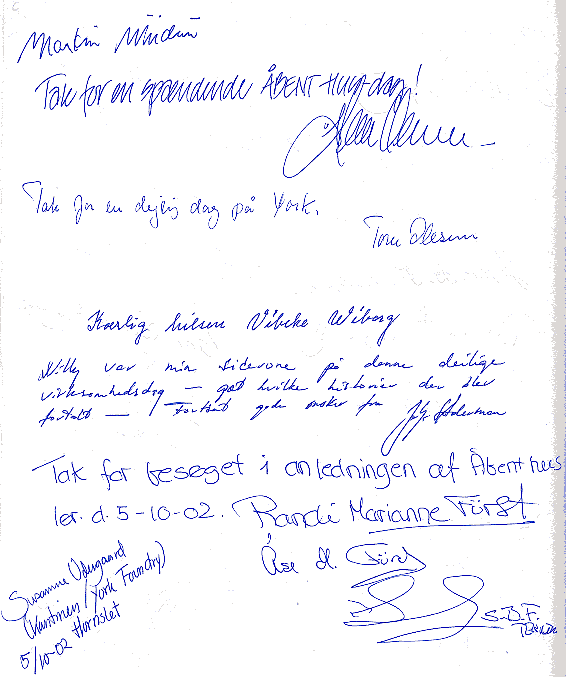 Martin
Tak for en spændende ÅBENT Hus-dag!
Tak for en dejlig dag på York.
Tom Olesen
Kærlig hilsen Vibeke Wiberg
Willy var min sidevone på denne dejlige
virksomhedsdag — gad hvilke historier der blev
fortalt — Fortsat gode ønsker fra
Tak for besøget i anledningen af Åbent hus
lør. d. 5-10-02. Randi Marianne Fürst
Åse M. Fürst
S.D.F.
Susanne Odgaard
(Kantinen / York Foundry)
5/10-02 Hornslet